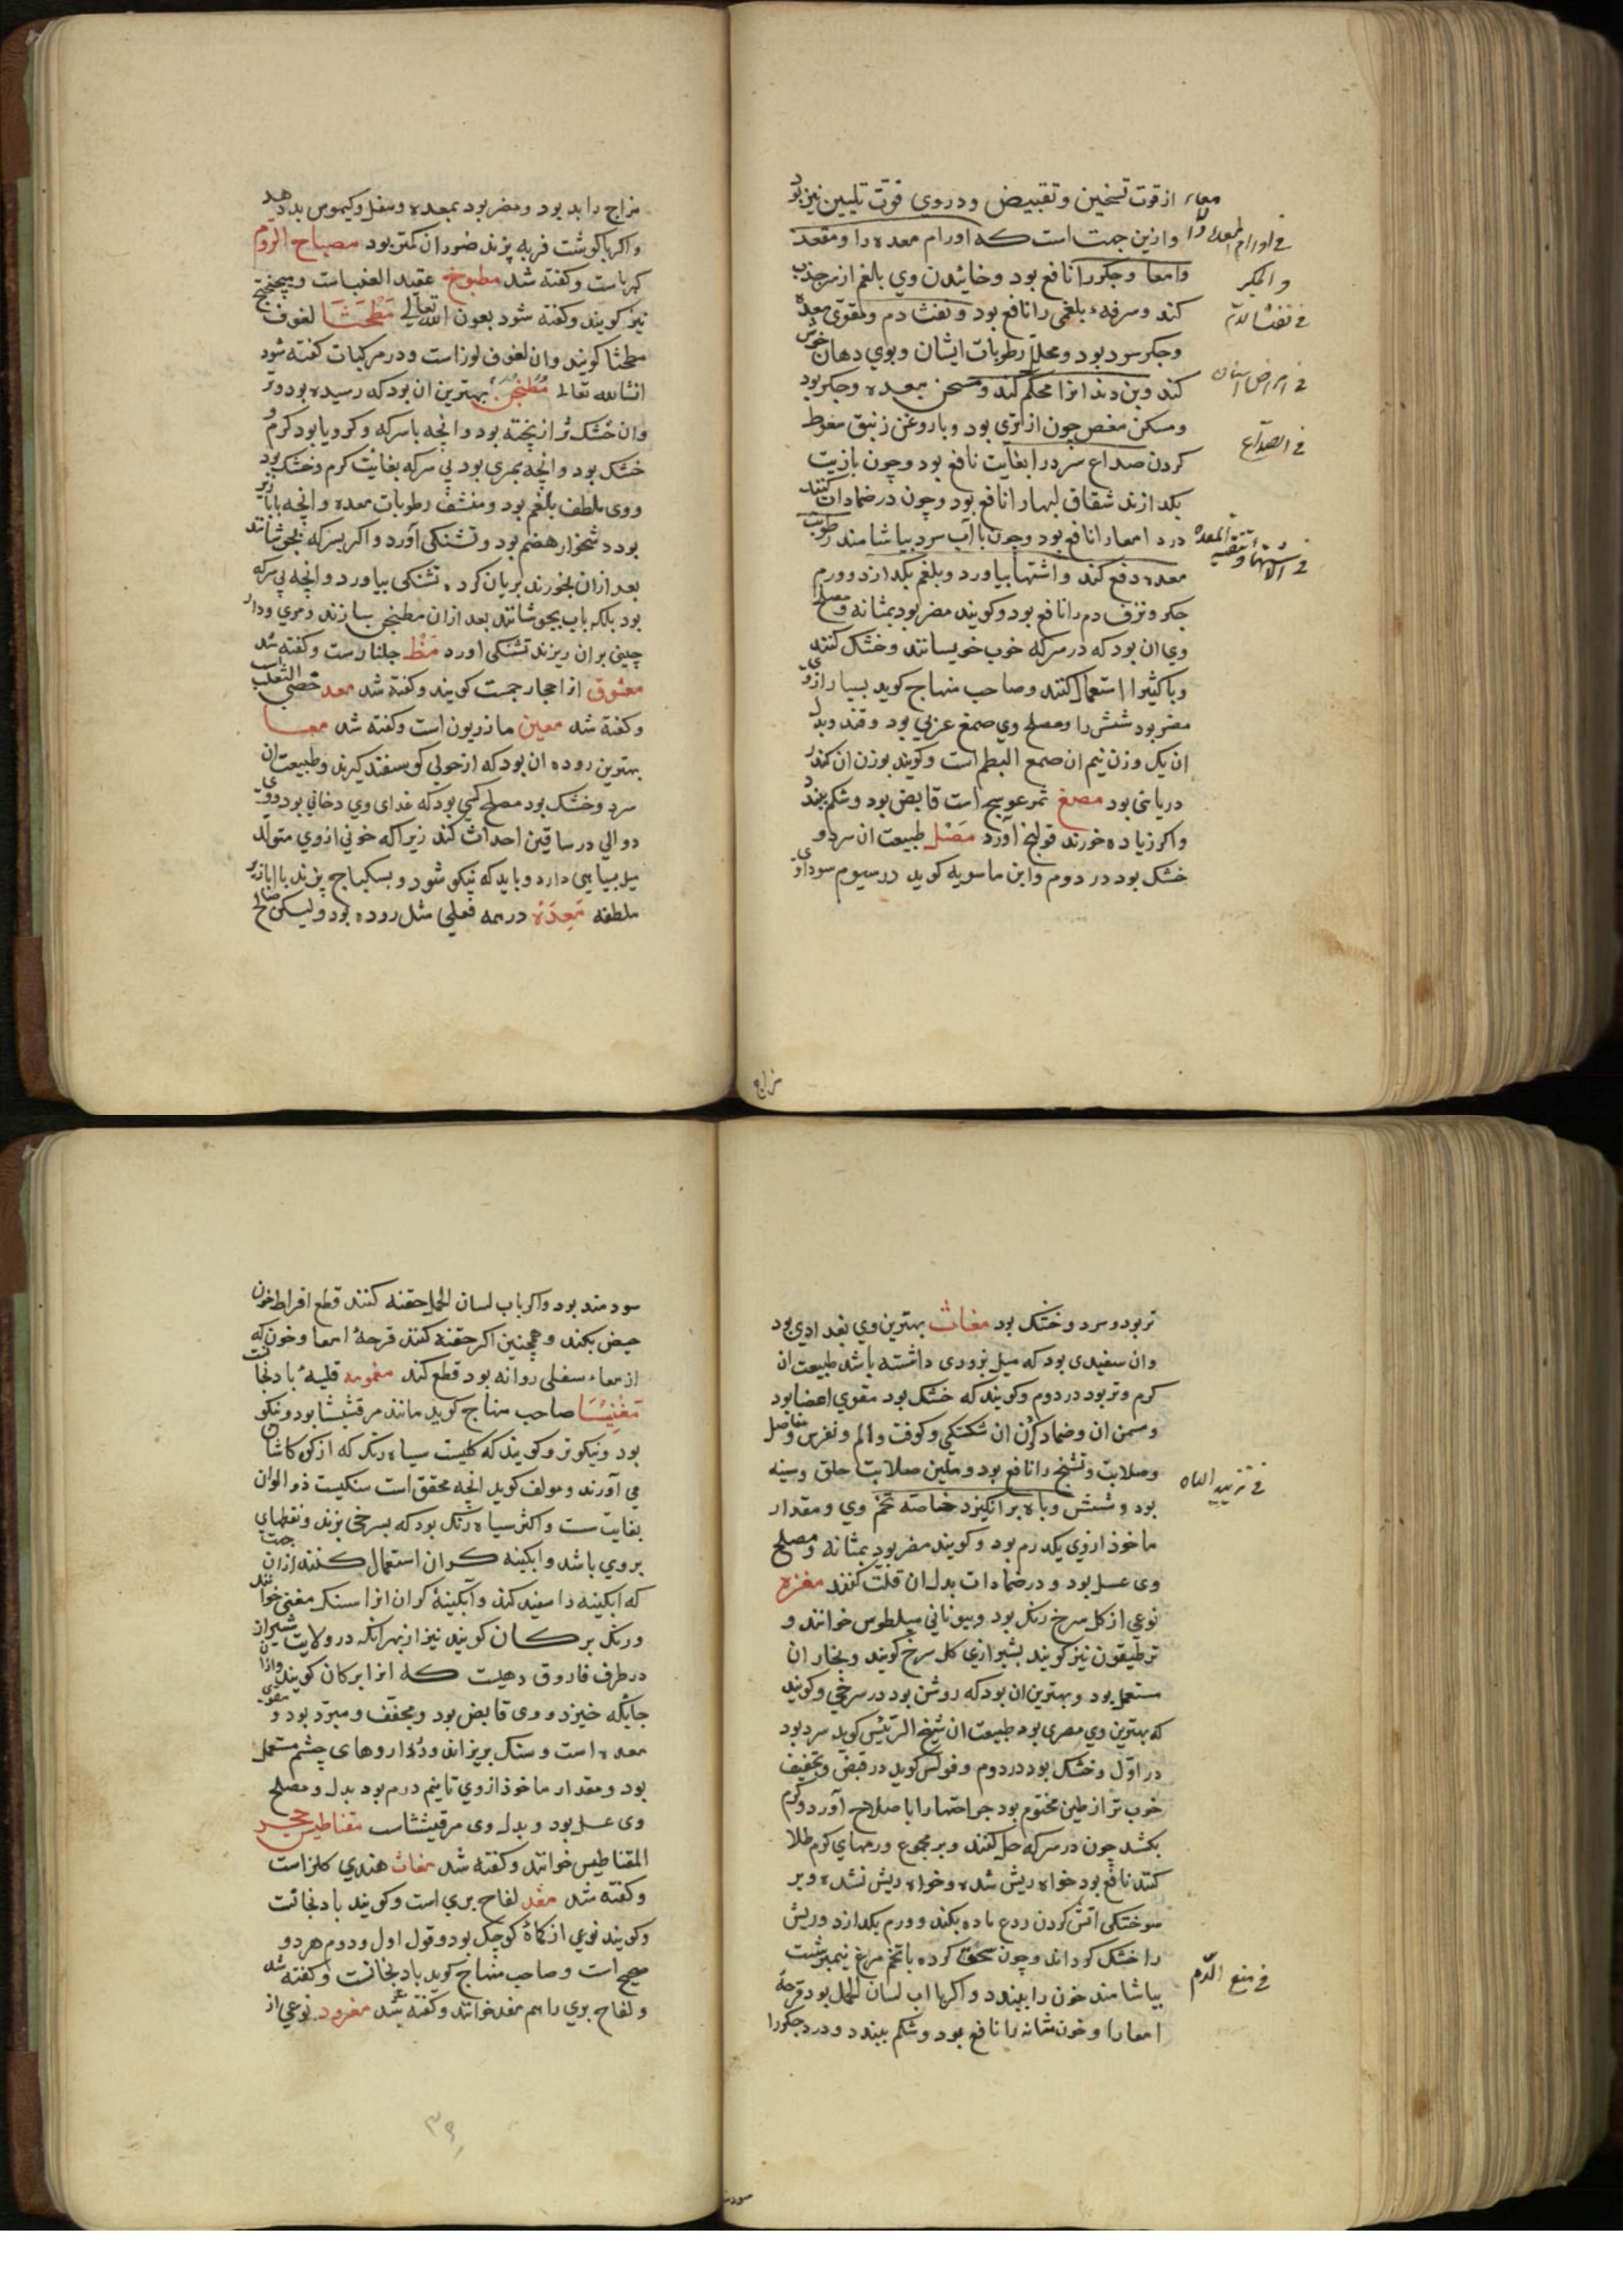 از قوت تسخین و تقبیض و دروی قوت تلیین نیز بود
و ازین جهت است که اورام معده را و مقعد
و امعا و جکر را نافع بود و خائیدن وی بلغم از سر جذب
کند و سرفهء بلغمی را نافع بود و نفث دم و مقوی معده
و جکر سرد بود و محلل رطوبات ایشان و بوی دهان خوش
کند و بن دندانرا محکم کند و مسخن معده و جکر بود
و مسکن مغص چون از تری بود و با روغن زنبق سعوط
کردن صداع سرد را بغایت نافع بود و چون بازیت
بکدازند شقاق لبها را نافع بود و چون در ضمادات کنند
درد امعا را نافع بود و چون با آب سرد بیاشامند رطوبت
معده دفع کند و اشتها بیاورد و بلغم بکدازد و ورم
جکر و نزف دم را نافع بود و کویند مضر بود بمثانه و مصلح
وی ان بود که در سرکه خوب خویسانند و خشک کنند
و با کثیرا استعمال کنند و صاحب منهاج کوید بسیار از وی
مضر بود شش را و مصلح وی صمغ عربی بود و قند و بدل
ان یک وزن نیم ان صمغ البطم است و کویند بوزن ان کندر
دریائی بود مصع ثمر عوسج است قابض بود و شکم ببندد
و اکر زیاده خورند قولنج آورد مصل طبیعت ان سرد و
خشک بود در دوم و ابن ماسویه کوید در سیوم سوداوی
فی اورام المعده
و الجکر
فی نفث الدم
فی امراض اسنان
فی الصداع
مزاج
مزاج را بد بود و مضر بود بمعده و سفل و کیموس بد دهد
و اکر با کوشت فربه پزند ضرر ان کمتر بود مصباح الروم
کهرباست و کفته شد مطبوخ عقید العنب است و میپختج
نیز کویند و کفته شود بعون الله تعالی مطحثا لغوف
مطحثا کویند و ان لغوف لوز است و در مرکبات کفته شود
انشاالله تعالی مطنجن بهترین ان بود که رسیده بود و تر
و ان خشک تر از پخته بود و انچه با سرکه و کرویا بود کرم و
خشک بود و انچه بمری بود بی سرکه بغایت کرم و خشک بود
و وی ملطف بلغم بود و منشف رطوبات معده و انچه بابازیر
بود دشخوار هضم بود و تشنکی آورد و اکر بسرکه بجوشانند
بعد ازان بخورند بریان کرده تشنکی بیاورد و انچه بی سرکه
بود بلکه باب بجوشانند بعد ازان مطنجن سازند و مری و دار
چینی بران ریزند تشنکی اورد مظ جلنار است و کفته شد
معشوق از احجار جمست کویند و کفته شد معد خصی الثعلب است
و کفته شد معین ماذریون است و کفته شد معا
بهترین روده ان بود که از حولی کوسفند کیرند و طبیعت ان
سرد و خشک بود مصلح کسی بود که غدای وی دخانی بود و وی
دوالی در ساقین احداث کند زیرا که خونی از وی متولد
میل بسیاهی دارد و باید که نیکو شود و بسکباج پزند با ابازیر
ملطفه معده در همه فعلی مثل روده بود و لیکن صالح
تر بود و سرد و خشک بود مغاث بهترین وی بغدادی بود
و ان سفیدی بود که میل بزردی داشته باشد طبیعت ان
کرم و تر بود در دوم و کویند که خشک بود مقوی اعضا بود
و مسمن ان و ضماد کردن ان شکستکی و کوفت و الم و نقرس و مفاصل
و صلابت و تشنج را نافع بود و ملین صلابت حلق و سینه
بود و شش و باه برانکیزد خاصه تخم وی و مقدار
ماخوذ از وی یکدرم بود و کویند مضر بود بمثانه و مصلح
وی عسل بود و در ضمادات بدل ان قلت کنند مغره
نوعی از کل سرخ رنک بود و بیونانی میلطوس خوانند و
ترطیقون نیز کویند بشیرازی کل سرخ کویند و بخار ان
مستعمل بود و بهترین ان بود که روشن بود در سرخی و کویند
که بهترین وی مصری بود طبیعت ان شیخ الرئیس کوید سرد بود
در اول و خشک بود در دوم و فولس کوید در قبض و تجفیف
خوب تر از طین مختوم بود جراحتها را با صلاح آورد و کرم
بکشد چون در سرکه حل کنند و بر مجموع ورمهای کرم طلا
کنند نافع بود خواه ریش شده و خواه ریش نشده و بر
سوختکی اتش کردن ردع ماده بکند و ورم بکدازد و ریش
را خشک کرداند و چون سحق کرده با تخم مرغ نیمبرشت
بیاشامند خون را ببندد و اکر با اب لسان الحمل بود قرحهٔ
امعا را و خون مثانه را نافع بود و شکم ببندد و درد جکر را
فی تزیید الباه
فی منع الدم
سودمند
سودمند بود و اکر باب لسان الحمل حقنه کنند قطع افراط خون
حیض بکند و همچنین اکر حقنه کنند قرحهٔ امعا و خون که
از معاء سفلی روانه بود قطع کند مغمومه قلیهٔ بادنجانست
مغنیسا صاحب منهاج کوید مانند مرقشیشا بود و نیکو
بود و نیکوتر و کویند که کلیست سیاه رنک که از کوه کاشان
می آورند و مولف کوید انچه محقق است سنکیست ذو الوان
بغایت سست و اکثر سیاه رنک بود که بسرخی زند و نقطهای
بروی باشد و ابکینه کران استعمال کنند ازان جهت
که ابکینه را سفید کند و آبکینهٔ کران انرا سنک مغنی خوانند
و رنک برکان کویند نیز از بهر انکه در ولایت شیراز
در طرف فاروق دهیست که انرا برکان کویند و ازان
جایکه خیزد و وی قابض بود و مجفف و مبرد بود و مقوی
معده است و سنک بریزاند و در داروهای چشم مستعمل
بود و مقدار ماخوذ از وی تا نیم درم بود بدل و مصلح
وی عسل بود و بدل وی مرقیشثاست مقناطیس حجر
المقناطیس خوانند و کفته شد مغاث هندی کلز است
و کفته شد مغد لفاح بری است و کویند بادنجانست
و کویند نوعی از کماهٔ کوچک بود و قول اول و دوم هر دو
صحیح است و صاحب منهاج کوید بادنجانست و کفته شد
و لفاح بری را هم مغد خوانند و کفته شد مغرود نوعی از
۳۹